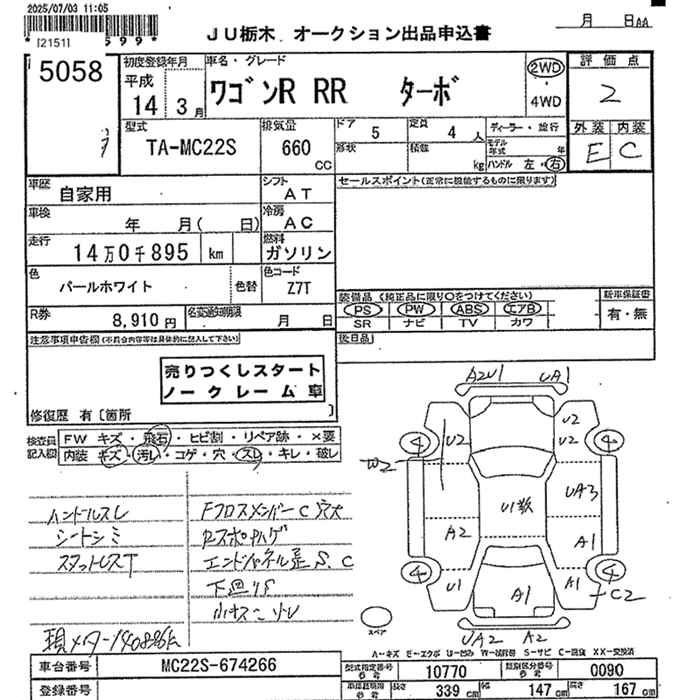 2025/07/03 11:05
JU栃木 オークション出品申込書
月 日AA
*[2151] 599*
5058
初度登録年月
平成
14 3月
車名・グレード
ワゴンR RR ターボ
2WD
4WD
評価点
2
外装 内装
E C
型式
TA-MC22S
排気量
660 CC
ドア 5
定員 4人
ディーラー・並行
形状
積載 kg
モデル年式 年
ハンドル 左・右
車歴
自家用
シフト
AT
セールスポイント(正常に機能するものに限ります)
車検
年 月( 日)
冷房
AC
走行
14万0千895 km
燃料
ガソリン
色
パールホワイト
色替
色コード
Z7T
装備品(純正品に限り○をつけてください)
PS PW ABS エアB
SR ナビ TV カワ
新車保証書
有・無
R券
8,910円
名変通知期限
月 日
後日品
注意事項申告欄(不具合内容等は具体的に記入して下さい)
売りつくしスタート
ノークレーム車
修復歴 有〔箇所 〕
検査員記入欄
FW キズ・飛石・ヒビ割・リペア跡・×要
内装 キズ・汚レ・コゲ・穴・スレ・キレ・破レ
A2U1 UA1
4 U2 U2 U2 4
W2
U1数
UA3
A2 A1
4 U1 A1 A1 4
C2
UA2 A2
スペア
ハンドルスレ
シートシミ
スタットレスT
FクロスメンバーC穴大
エンドパネル歪S.C
下回りS
現メーター140896k
A-キズ E-エクボ U-凹み W-補修跡 S-サビ C-腐食 XX-交換済
車台番号
MC22S-674266
登録番号
型式指定番号
10770
類別区分番号
0090
長さ 339cm
幅 147cm
高さ 167cm